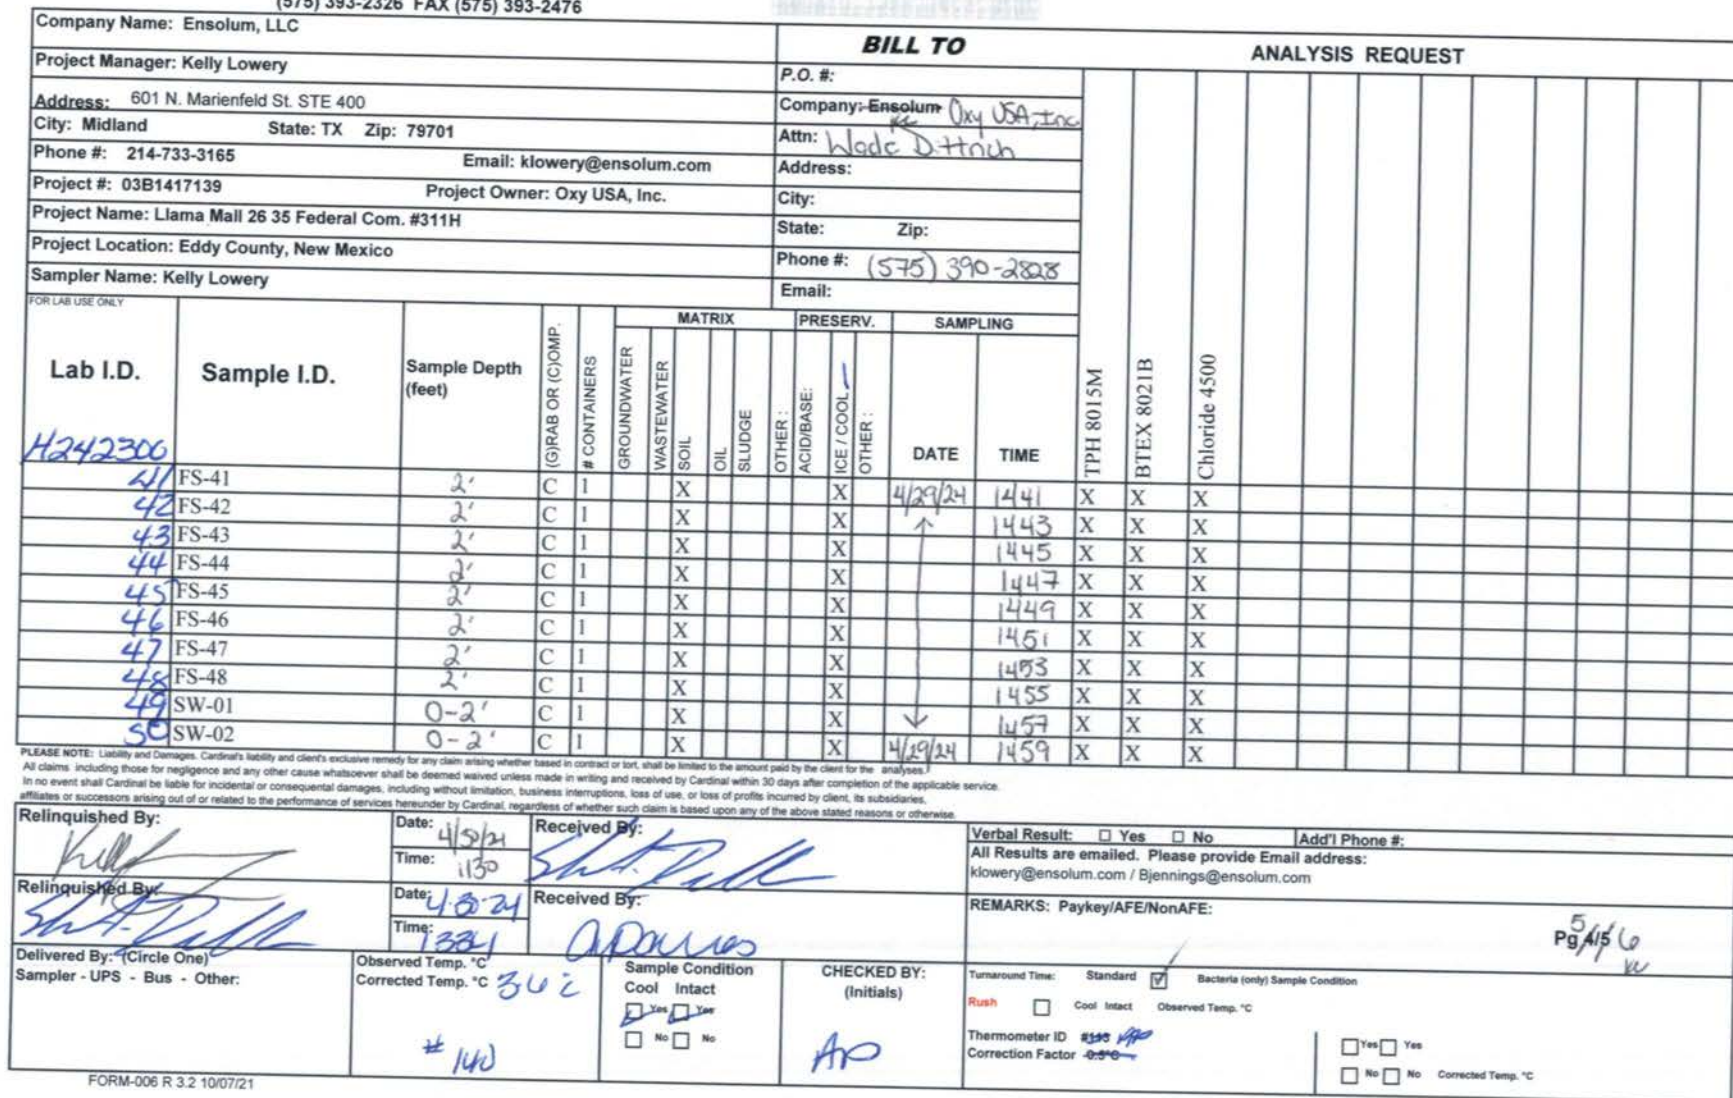 (575) 393-2326 FAX (575) 393-2476
Company Name: Ensolum, LLC
BILL TO
ANALYSIS REQUEST
Project Manager: Kelly Lowery
P.O. #:
Address: 601 N. Marienfeld St. STE 400
Company: Ensolum Oxy USA, Inc
City: Midland State: TX Zip: 79701
Attn: Wade Dittrich
Phone #: 214-733-3165 Email: klowery@ensolum.com
Address:
Project #: 03B1417139 Project Owner: Oxy USA, Inc.
City:
Project Name: Llama Mall 26 35 Federal Com. #311H
State: Zip:
Project Location: Eddy County, New Mexico
Phone #: (575) 390-2828
Sampler Name: Kelly Lowery
Email:
FOR LAB USE ONLY
MATRIX PRESERV. SAMPLING
Lab I.D. Sample I.D. Sample Depth (feet) (G)RAB OR (C)OMP. # CONTAINERS GROUNDWATER WASTEWATER SOIL OIL SLUDGE OTHER : ACID/BASE: ICE / COOL OTHER : DATE TIME TPH 8015M BTEX 8021B Chloride 4500
H242300
41 FS-41 2' C 1 X X 4/29/24 1441 X X X
42 FS-42 2' C 1 X X 1443 X X X
43 FS-43 2' C 1 X X 1445 X X X
44 FS-44 2' C 1 X X 1447 X X X
45 FS-45 2' C 1 X X 1449 X X X
46 FS-46 2' C 1 X X 1451 X X X
47 FS-47 2' C 1 X X 1453 X X X
48 FS-48 2' C 1 X X 1455 X X X
49 SW-01 0-2' C 1 X X 1457 X X X
50 SW-02 0-2' C 1 X X 4/29/24 1459 X X X
PLEASE NOTE: Liability and Damages. Cardinal's liability and client's exclusive remedy for any claim arising whether based in contract or tort, shall be limited to the amount paid by the client for the analyses.
All claims including those for negligence and any other cause whatsoever shall be deemed waived unless made in writing and received by Cardinal within 30 days after completion of the applicable service.
In no event shall Cardinal be liable for incidental or consequental damages, including without limitation, business interruptions, loss of use, or loss of profits incurred by client, its subsidiaries,
affiliates or successors arising out of or related to the performance of services hereunder by Cardinal, regardless of whether such claim is based upon any of the above stated reasons or otherwise.
Relinquished By: Date: 4/30/24 Received By:
Time: 1130
Verbal Result: Yes No Add'l Phone #:
All Results are emailed. Please provide Email address:
klowery@ensolum.com / Bjennings@ensolum.com
Relinquished By: Date: 4-30-24 Received By:
Time: 1334
REMARKS: Paykey/AFE/NonAFE:
5
Pg 4/5 6
Delivered By: (Circle One)
Sampler - UPS - Bus - Other:
Observed Temp. °C
Corrected Temp. °C
# 140
Sample Condition
Cool Intact
Yes Yes
No No
CHECKED BY:
(Initials)
AP
Turnaround Time: Standard Bacteria (only) Sample Condition
Rush Cool Intact Observed Temp. °C
Thermometer ID #113
Correction Factor -0.5°C
Yes Yes
No No Corrected Temp. °C
FORM-006 R 3.2 10/07/21